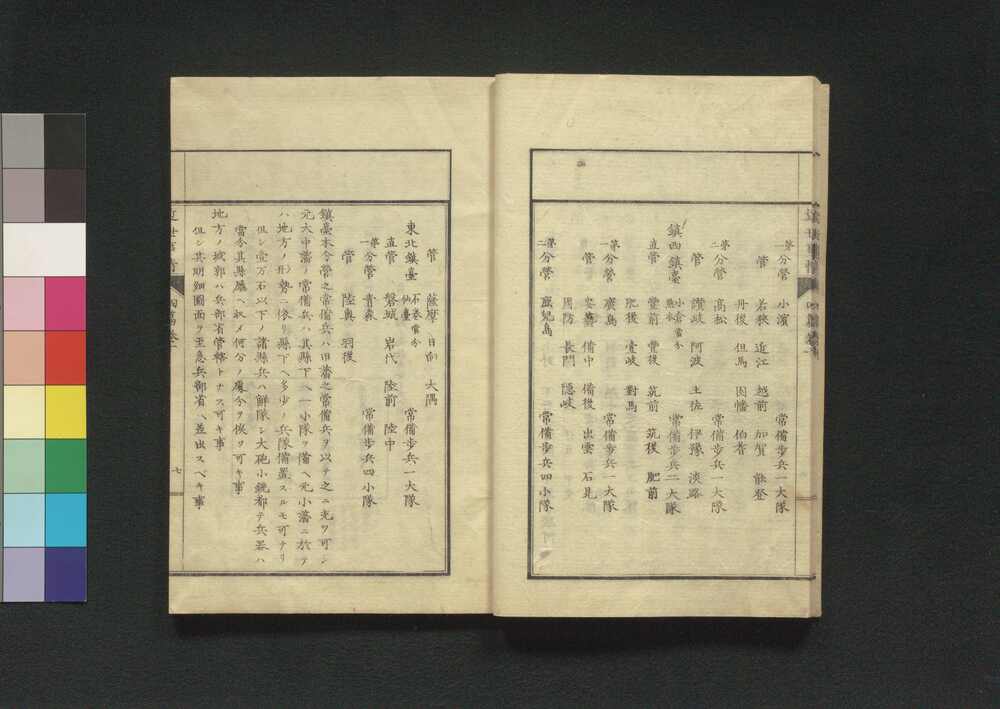 第一分營 小濱 常備步兵一大隊
管 若狹 近江 越前 加賀 能登
丹後 但馬 因幡 伯耆
第二分營 高松 常備步兵一大隊
管 讚岐 阿波 土佐 伊豫 淡路
鎮西鎮臺 小倉當分熊本 常備步兵二大隊
直管 豐前 豐後 筑前 筑後 肥前
肥後 壹岐 對馬
第一分營 廣島 常備步兵一大隊
管 安藝 備中 備後 出雲 石見
周防 長門 隱岐
第二分營 鹿兒島 常備步兵四小隊
管 薩摩 日向 大隅
東北鎮臺 石卷當分仙臺 常備步兵一大隊
直管 磐城 岩代 陸前 陸中
第一分營 青森 常備步兵四小隊
管 陸奧 羽後
鎮臺本分營之常備兵ハ旧藩之常備兵ヲ以テ之ニ充ツ可シ
元大中藩ノ常備兵ハ其縣下ヘ一小隊ヲ備ヘ元小藩ニ於テ
ハ地方ノ形勢ニ依リ縣下ヘ多少ノ兵隊備置スルモ可ナリ
但シ壹万石以下ノ諸縣兵ハ解隊シ大砲小銃都テ兵器ハ
當今其縣廳ヘ收メ何分ノ處分ヲ俟ツ可キ事
地方ノ城郭ハ兵部省管轄トナス可キ事
但シ其明細圖面ヲ至急兵部省ヘ差出スヘキ事
七